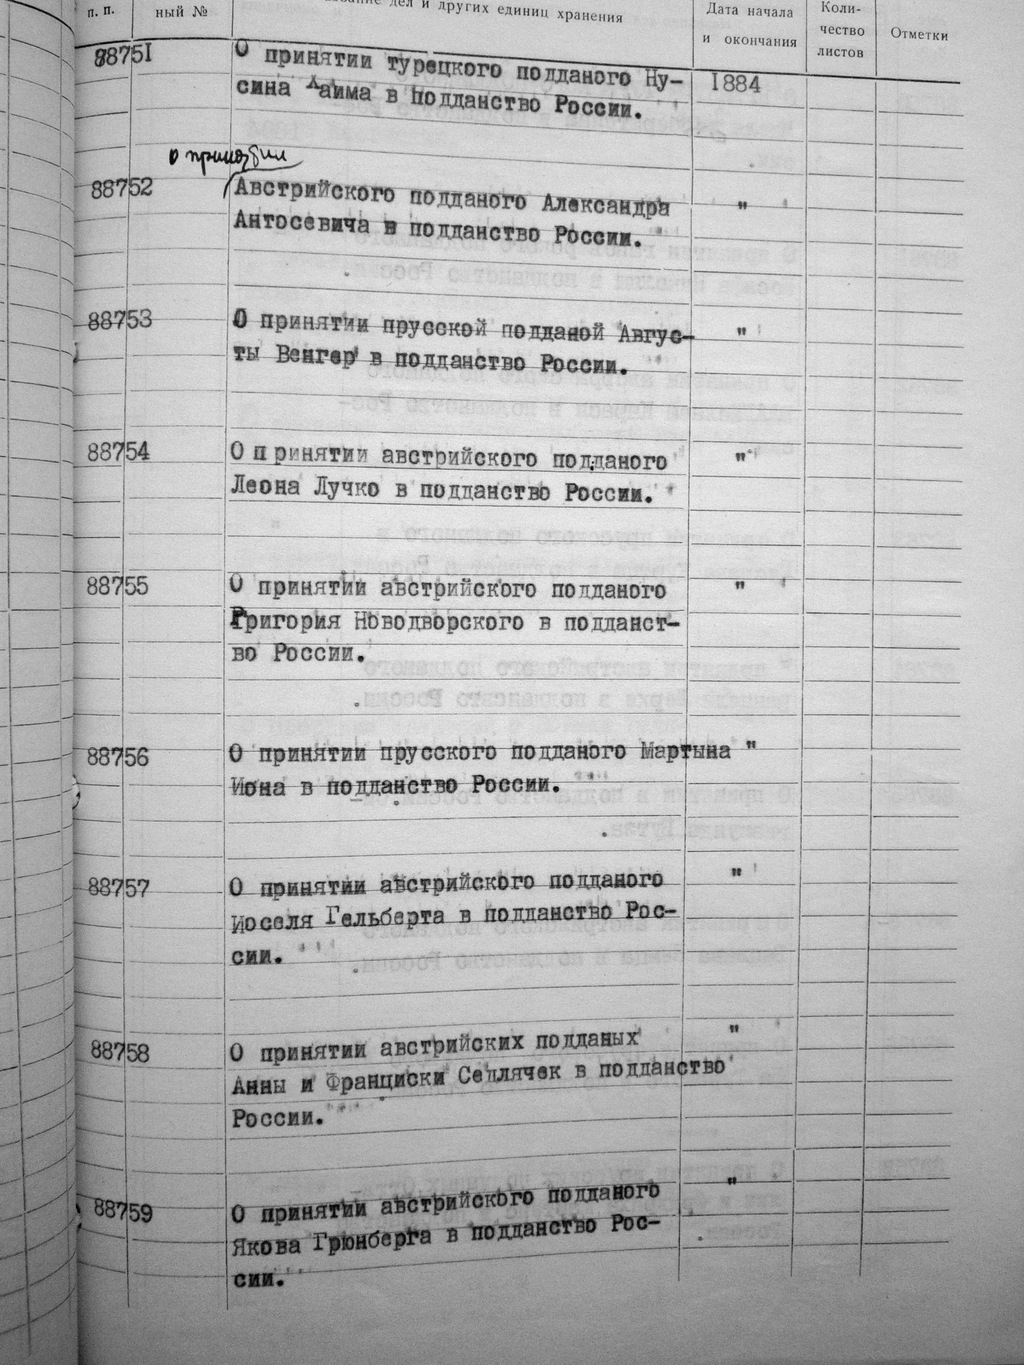 п. п.
ный №
дел и других единиц хранения
Дата начала
и окончания
Коли-
чество
листов
Отметки
88751
О принятии турецкого подданого Ну-
сина Хаима в подданство России.
1884
о принятии
88752
Австрийского подданого Александра
Антосевича в подданство России.
"
88753
О принятии прусской подданой Авгус-
ты Венгер в подданство России.
"
88754
О принятии австрийского подданого
Леона Лучко в подданство России.
"
88755
О принятии австрийского подданого
Григория Новодворского в подданст-
во России.
"
88756
О принятии прусского подданого Мартына "
Иона в подданство России.
88757
О принятии австрийского подданого
Иоселя Гельберта в подданство Рос-
сии.
"
88758
О принятии австрийских подданых
Анны и Франциски Сеплячек в подданство
России.
"
88759
О принятии австрийского подданого
Якова Грюнберга в подданство Рос-
сии.
"